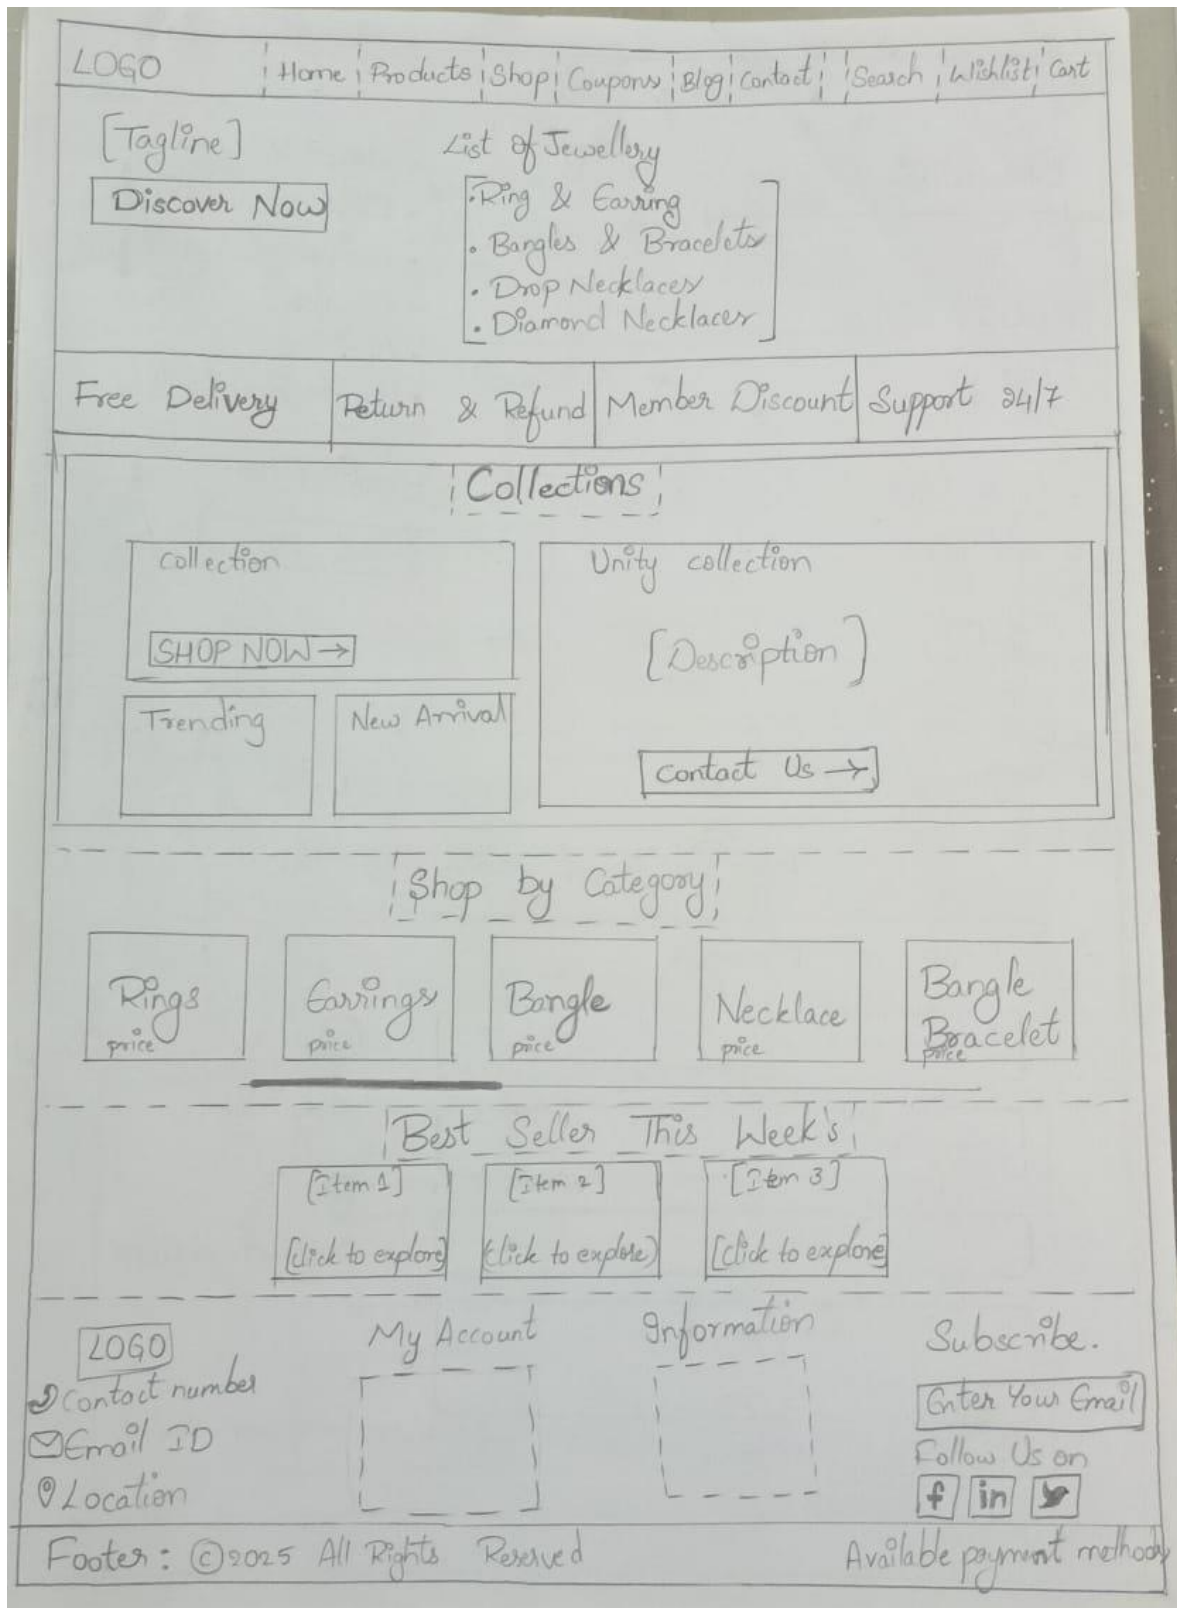 LOGO Home Products Shop Coupons Blog Contact Search Wishlist Cart
[Tagline]
Discover Now
List of Jewellery
• Ring & Earring
• Bangles & Bracelets
• Drop Necklaces
• Diamond Necklaces
Free Delivery Return & Refund Member Discount Support 24/7
Collections
Collection
SHOP NOW →
Trending
New Arrival
Unity collection
[Description]
Contact Us →
Shop by Category
Rings
price
Earrings
price
Bangle
price
Necklace
price
Bangle
Bracelet
price
Best Seller This Week's
[Item 1]
[click to explore]
[Item 2]
(click to explore)
[Item 3]
[click to explore]
LOGO
Contact number
Email ID
Location
My Account
Information
Subscribe.
Enter Your Email
Follow Us on
f in
Footer: © 2025 All Rights Reserved
Available payment methods